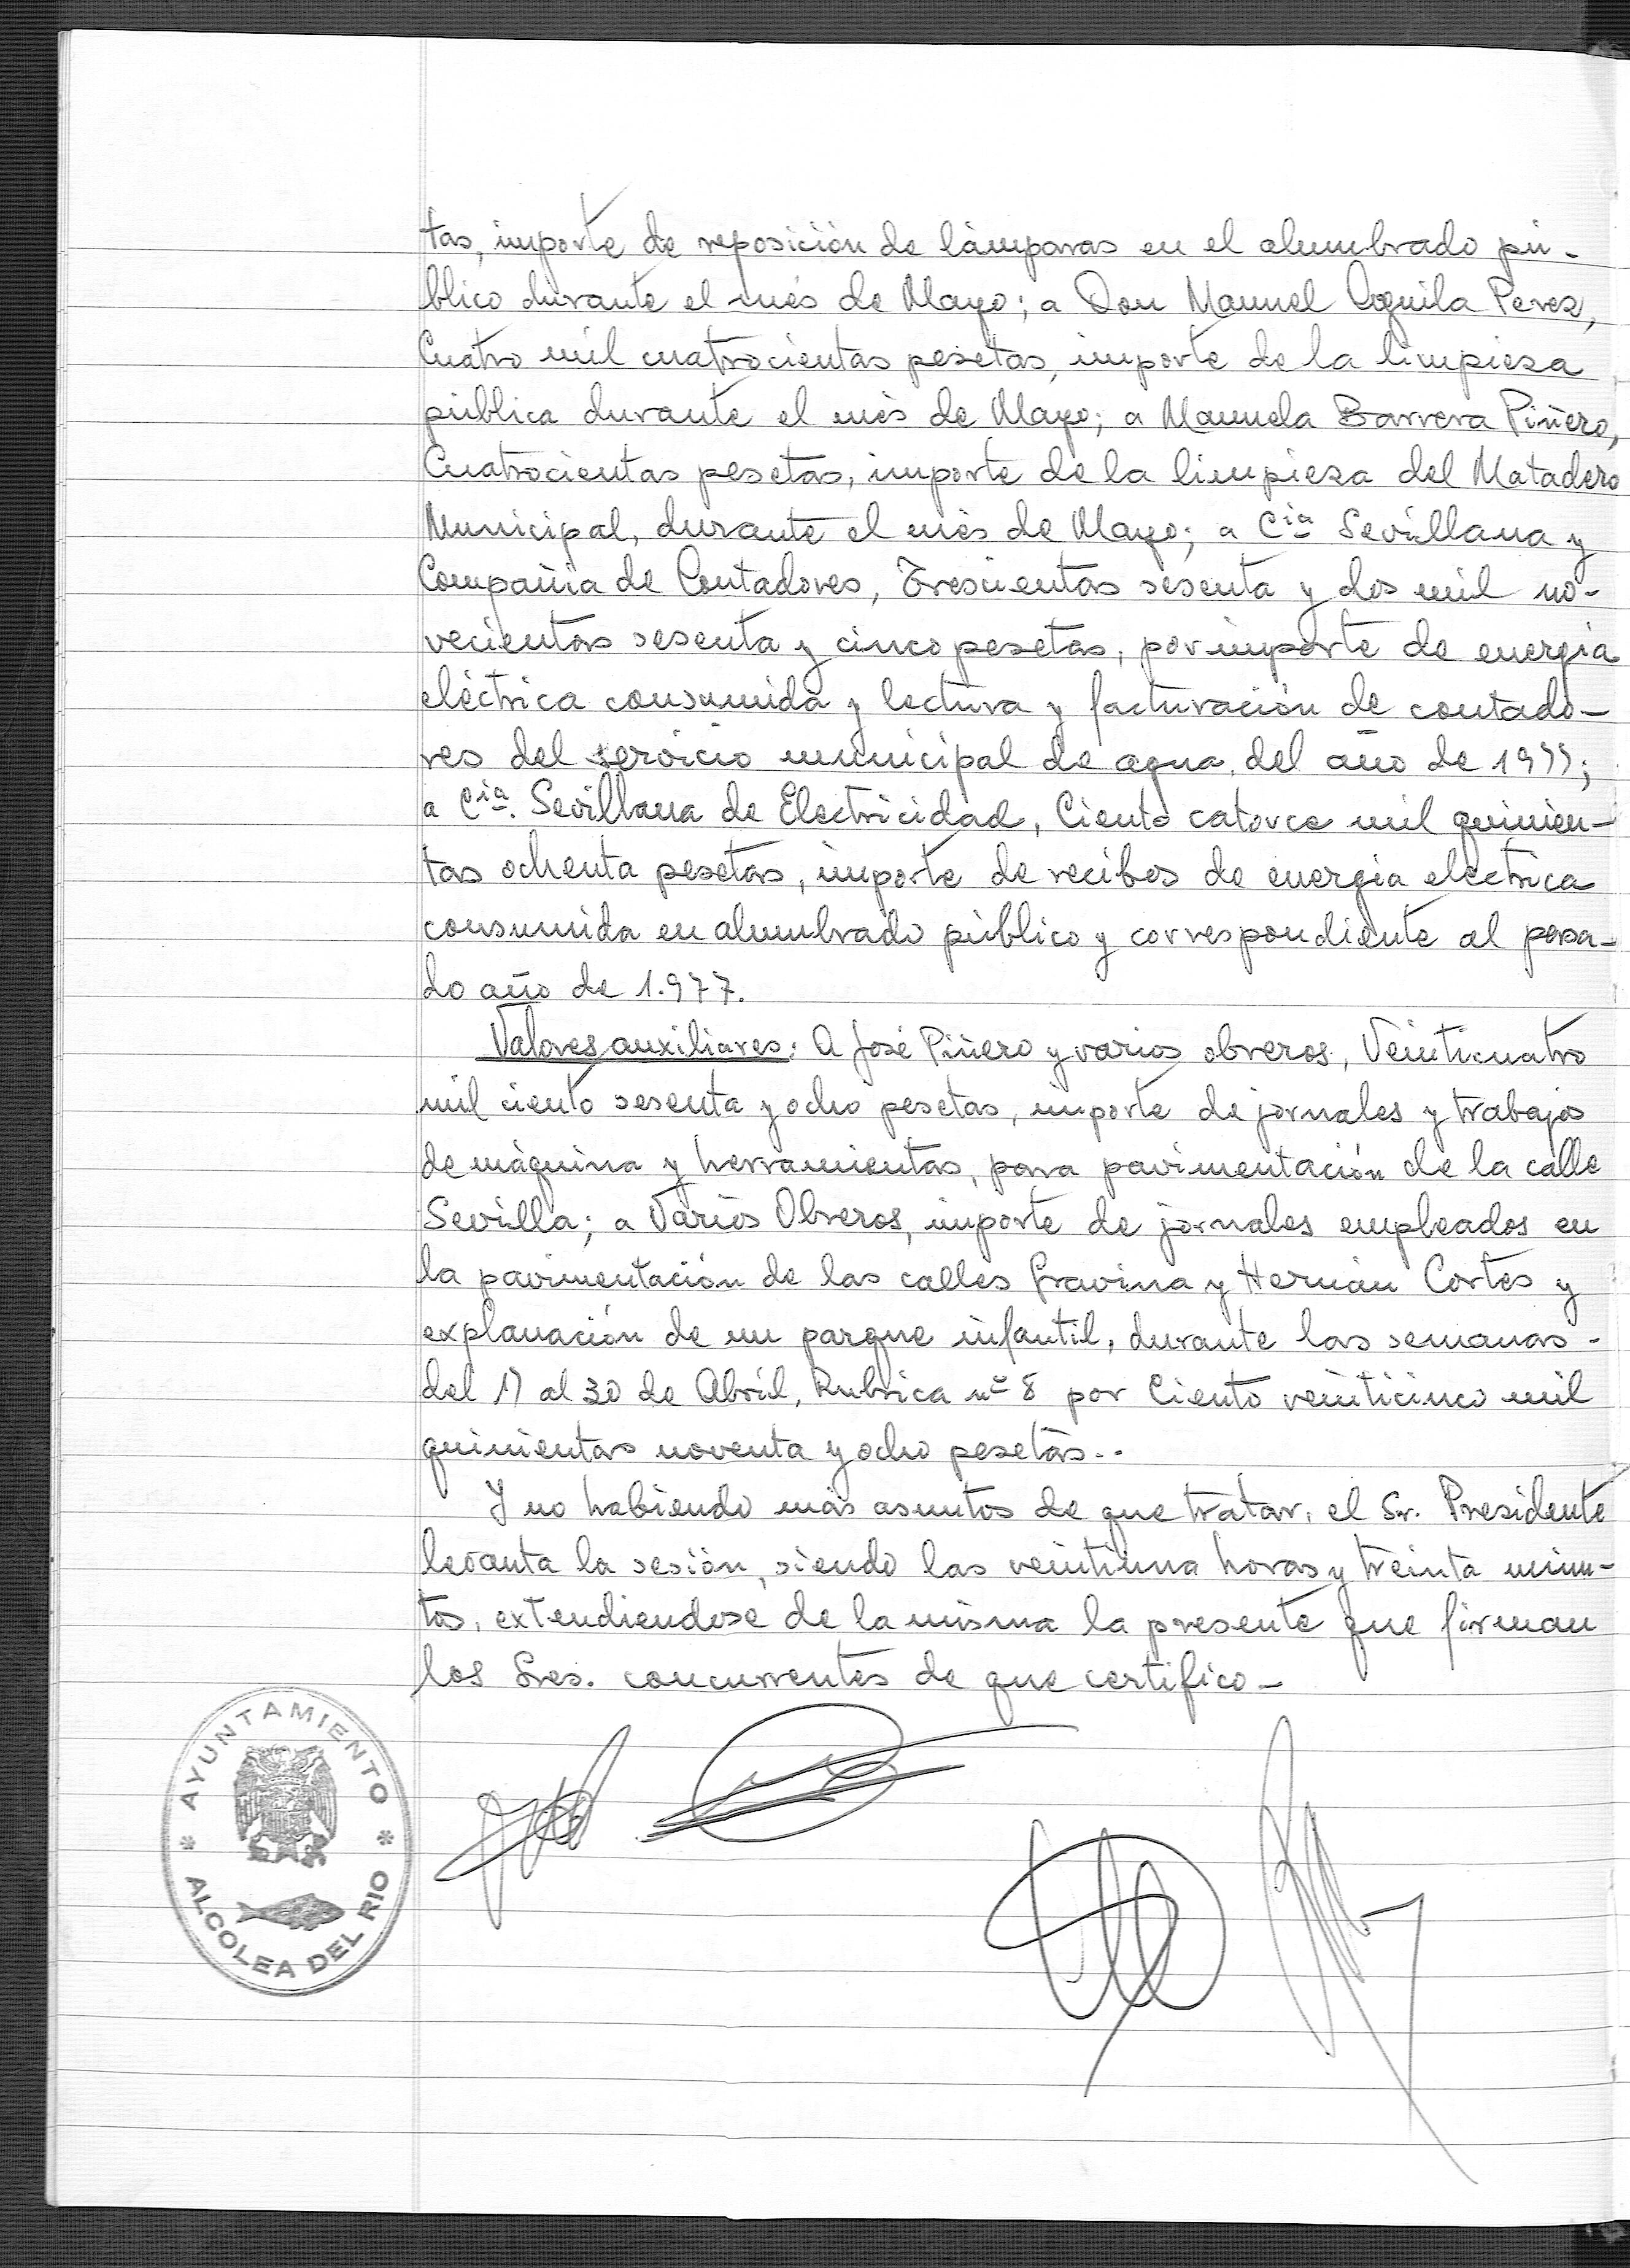 tas, importe de reposición de lámparas en el alumbrado pú-
blico durante el més de Mayo; a Don Manuel Aguila Perez,
Cuatro mil cuatrocientas pesetas, importe de la limpieza
pública durante el més de Mayo; a Manuela Barrera Piñero,
Cuatrocientas pesetas, importe de la limpieza del Matadero
Municipal, durante el més de Mayo; a Cia Sevillana y
Compañia de Contadores, Trescientas sesenta y dos mil no-
vecientas sesenta y cinco pesetas, por importe de energia
eléctrica consumida y lectura y facturación de contado-
res del servicio municipal de agua del año de 1977;
a Cia. Sevillana de Electricidad, Ciento catorce mil quinien-
tas ochenta pesetas, importe de recibos de energia electrica
consumida en alumbrado público y correspondiente al pasa-
do año de 1.977.
Valores auxiliares: A José Piñero y varios obreros, Veinticuatro
mil ciento sesenta y ocho pesetas, importe de jornales y trabajos
de máquina y herramientas, para pavimentación de la calle
Sevilla; a Varios Obreros, importe de jornales empleados en
la pavimentación de las calles Gravina y Hernán Cortes y
explanación de un parque infantil, durante las semanas -
del 17 al 30 de Abril, Rubrica nº 8 por Ciento veinticinco mil
quinientas noventa y ocho pesetas..
Y no habiendo más asuntos de que tratar, el Sr. Presidente
levanta la sesión, siendo las veintiuna horas y treinta minu-
tos, extendiendose de la misma la presente que firman
los Sres. concurrentes de que certifico -
AYUNTAMIENTO
* ALCOLEA DEL RIO *